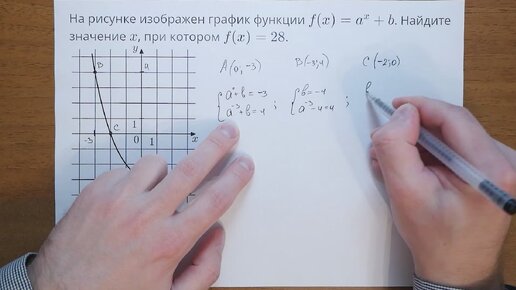 На рисунке изображен график функции f(x) = aˣ + b. Найдите
значение x, при котором f(x) = 28.
y
B
4
A(0; -3)
B(-3; 4)
C(-2; 0)
{a⁰+b=-3
{a⁻³+b=4
;
{b=-4
{a⁻³-4=4
;
{b
-3
C
1
0
1
x